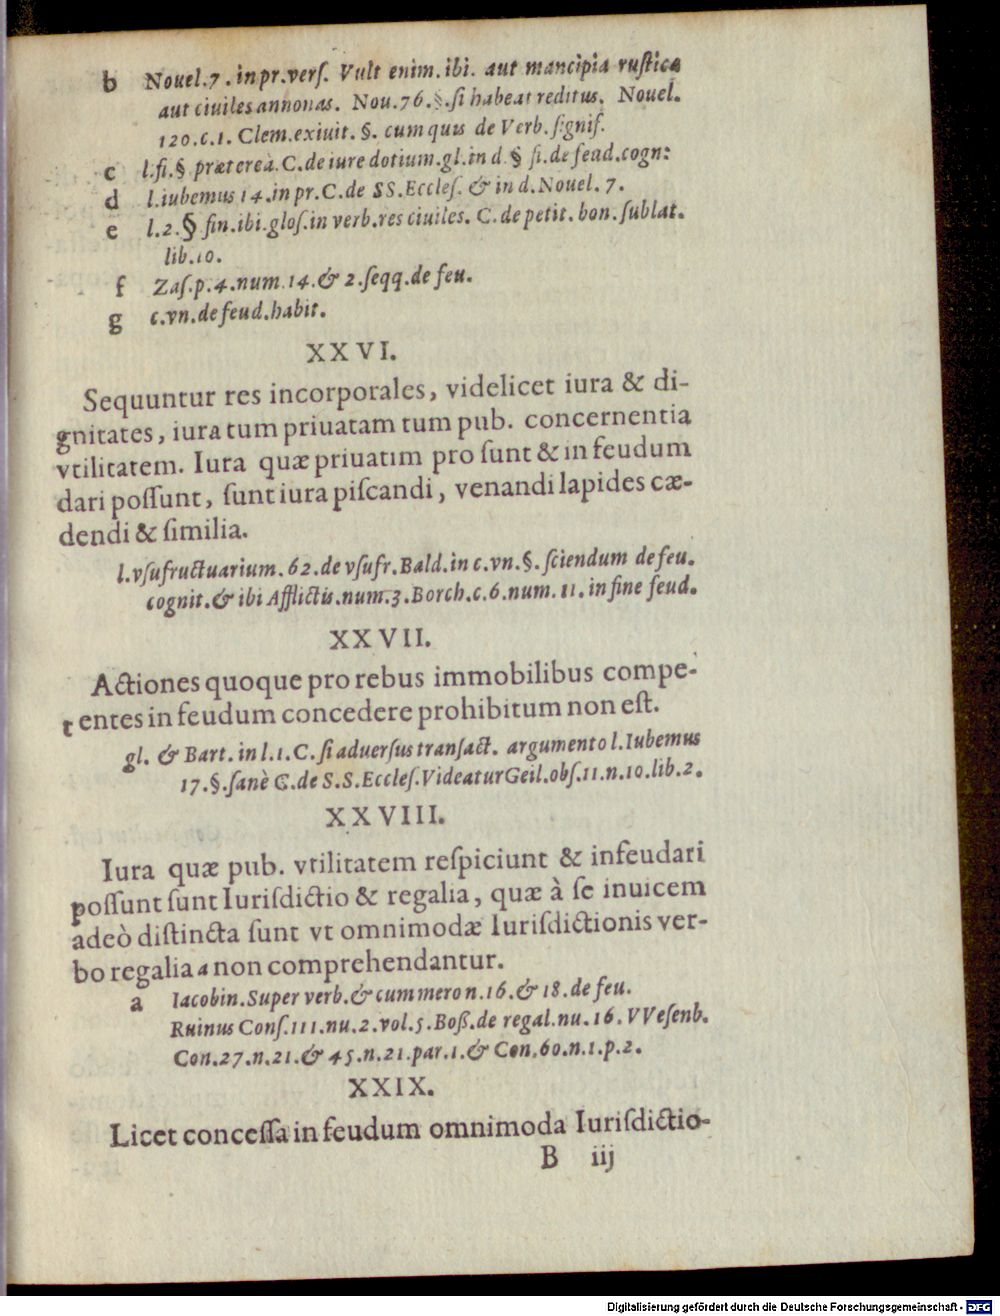 b Nouel.7. in pr.verſ. Vult enim. ibi. aut mancipia ruſtica
aut ciuiles annonas. Nou.76.§.ſi habeat reditus. Nouel.
120.c.1. Clem.exiuit. §. cum quis de Verb.ſignif.
c l.fi.§ præterea. C.de iure dotium.gl.in d.§ ſi.de feud.cogn:
d l.iubemus 14.in pr.C.de SS.Eccleſ. & in d.Nouel. 7.
e l.2.§ fin.ibi.gloſ.in verb.res ciuiles. C.de petit. bon. ſublat.
lib.10.
f Zaſ.p.4.num.14.& 2.ſeqq.de feu.
g c.vn.de feud.habit.
XXVI.
Sequuntur res incorporales, videlicet iura & di-
gnitates, iura tum priuatam tum pub. concernentia
vtilitatem. Iura quæ priuatim pro ſunt & in feudum
dari poſſunt, ſunt iura piſcandi, venandi lapides cæ-
dendi & ſimilia.
l.vſufructuarium. 62.de vſufr.Bald.in c.vn.§. ſciendum de feu.
cognit.& ibi Afflictis.num.3.Borch.c.6.num.11.in fine feud.
XXVII.
Actiones quoque pro rebus immobilibus compe-
tentes in feudum concedere prohibitum non eſt.
gl. & Bart. in l.1.C.ſi aduerſus tranſact. argumento l.Iubemus
17.§.ſanè C.de S.S.Eccleſ.Videatur Geil.obſ.11.n.10.lib.2.
XXVIII.
Iura quæ pub. vtilitatem reſpiciunt & infeudari
poſſunt ſunt Iurisdictio & regalia, quæ à ſe inuicem
adeò diſtincta ſunt vt omnimodæ Iuriſdictionis ver-
bo regalia a non comprehendantur.
a Iacobin.Super verb.& cum mero n.16.& 18.de feu.
Ruinus Conſ.111.nu.2.vol.5.Boß.de regal.nu.16.VVeſenb.
Con.27.n.21.& 45.n.21.par.1.& Con.60.n.1.p.2.
XXIX.
Licet conceſſa in feudum omnimoda Iuriſdictio-
B iij
Digitalisierung gefördert durch die Deutsche Forschungsgemeinschaft - DFG